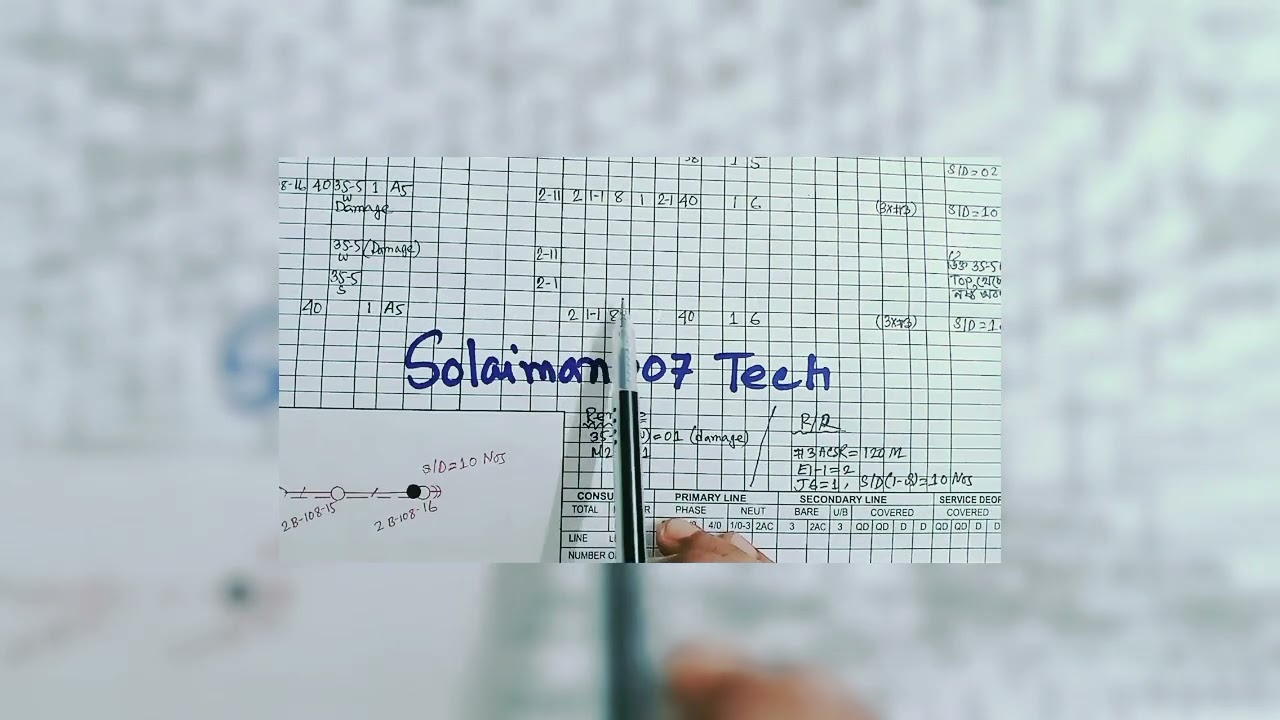 38 1 5
S/D=02
8-16 40 35-5 1 A5 2-11 2 1-1 8 1 2-1 40 1 6 (3x#3) S/D=10
W
Damage
35-5 (Damage) 2-11
W
উক্ত 35-5
35-5 2-1 Top থেকে
S
40 1 A5 2 1-1 8 40 1 6 (3x#3) S/D=1
Solaiman 07 Tech
R/R
35- =01 (damage)
#3 ACSR=120 M
M2 1
E1-1=2
J6=1, S/D(1-8)=10 Nos
S/D=10 Nos
2B-108-15
2B-108-16
CONSU PRIMARY LINE SECONDARY LINE SERVICE DEOP
TOTAL PHASE NEUT BARE U/B COVERED COVERED
4/0 1/0-3 2AC 3 2AC 3 QD QD D D QD QD D D
LINE
NUMBER O